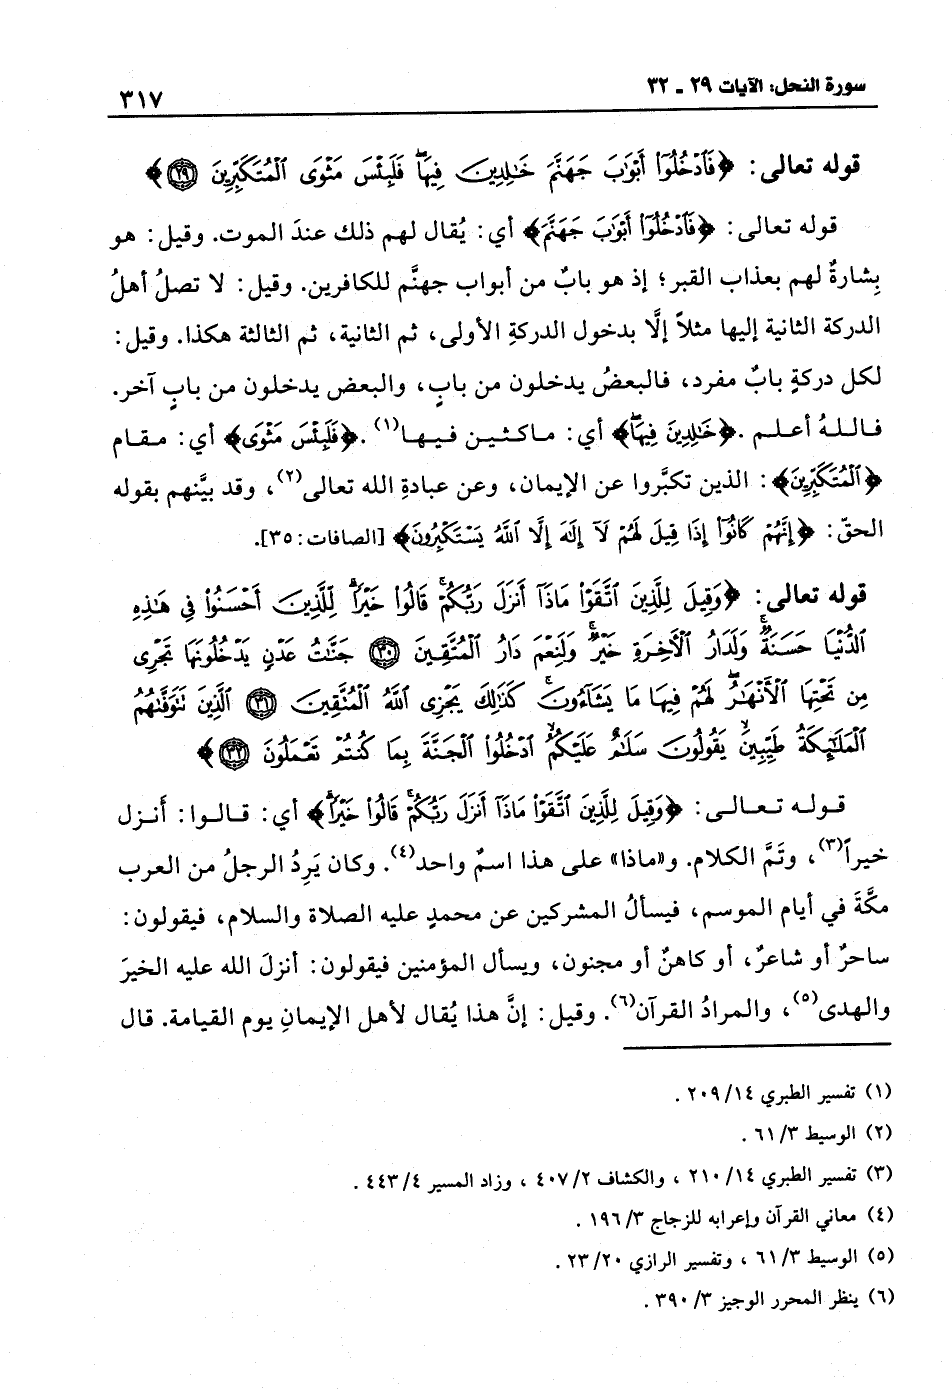 سورة النحل: الآيات ٢٩ ـ ٣٢
٣١٧
قوله تعالى: ﴿فَٱدْخُلُوٓا۟ أَبْوَٰبَ جَهَنَّمَ خَٰلِدِينَ فِيهَا ۖ فَلَبِئْسَ مَثْوَى ٱلْمُتَكَبِّرِينَ ۝٢٩﴾
قوله تعالى: ﴿فَٱدْخُلُوٓا۟ أَبْوَٰبَ جَهَنَّمَ﴾ أي: يُقال لهم ذلك عندَ الموت. وقيل: هو
بِشارةٌ لهم بعذاب القبر؛ إذ هو بابٌ من أبواب جهنَّم للكافرين. وقيل: لا تصلُ أهلُ
الدركة الثانية إليها مثلاً إلَّا بدخول الدركةِ الأولى، ثم الثانية، ثم الثالثة هكذا. وقيل:
لكل دركةٍ بابٌ مفرد، فالبعضُ يدخلون من بابٍ، والبعض يدخلون من بابٍ آخر.
فاللهُ أعلم. ﴿خَٰلِدِينَ فِيهَا ۖ﴾ أي: ماكثين فيها(١). ﴿فَلَبِئْسَ مَثْوَى﴾ أي: مقام
﴿ٱلْمُتَكَبِّرِينَ﴾: الذين تكبَّروا عن الإيمان، وعن عبادةِ الله تعالى(٢)، وقد بيَّنهم بقوله
الحقّ: ﴿إِنَّهُمْ كَانُوٓا۟ إِذَا قِيلَ لَهُمْ لَآ إِلَٰهَ إِلَّا ٱللَّهُ يَسْتَكْبِرُونَ﴾ [الصافات: ٣٥].
قوله تعالى: ﴿وَقِيلَ لِلَّذِينَ ٱتَّقَوْا۟ مَاذَآ أَنزَلَ رَبُّكُمْ ۚ قَالُوا۟ خَيْرًا ۗ لِّلَّذِينَ أَحْسَنُوا۟ فِى هَٰذِهِ
ٱلدُّنْيَا حَسَنَةٌ ۚ وَلَدَارُ ٱلْـَٔاخِرَةِ خَيْرٌ ۚ وَلَنِعْمَ دَارُ ٱلْمُتَّقِينَ ۝٣٠ جَنَّٰتُ عَدْنٍ يَدْخُلُونَهَا تَجْرِى
مِن تَحْتِهَا ٱلْأَنْهَٰرُ ۖ لَهُمْ فِيهَا مَا يَشَآءُونَ ۚ كَذَٰلِكَ يَجْزِى ٱللَّهُ ٱلْمُتَّقِينَ ۝٣١ ٱلَّذِينَ تَتَوَفَّىٰهُمُ
ٱلْمَلَٰٓئِكَةُ طَيِّبِينَ ۙ يَقُولُونَ سَلَٰمٌ عَلَيْكُمُ ٱدْخُلُوا۟ ٱلْجَنَّةَ بِمَا كُنتُمْ تَعْمَلُونَ ۝٣٢﴾
قوله تعالى: ﴿وَقِيلَ لِلَّذِينَ ٱتَّقَوْا۟ مَاذَآ أَنزَلَ رَبُّكُمْ ۚ قَالُوا۟ خَيْرًا ۗ﴾ أي: قالوا: أنزل
خيراً(٣)، وتَمَّ الكلام. و«ماذا» على هذا اسمٌ واحد(٤). وكان يَرِدُ الرجلُ من العرب
مكَّةَ في أيام الموسم، فيسألُ المشركين عن محمدٍ عليه الصلاة والسلام، فيقولون:
ساحرٌ أو شاعرٌ، أو كاهنٌ أو مجنون، ويسأل المؤمنين فيقولون: أنزلَ الله عليه الخيرَ
والهدى(٥)، والمرادُ القرآن(٦). وقيل: إنَّ هذا يُقال لأهل الإيمانِ يوم القيامة. قال
(١) تفسير الطبري ١٤/ ٢٠٩ .
(٢) الوسيط ٣/ ٦١ .
(٣) تفسير الطبري ١٤/ ٢١٠ ، والكشاف ٢/ ٤٠٧ ، وزاد المسير ٤/ ٤٤٣ .
(٤) معاني القرآن وإعرابه للزجاج ٣/ ١٩٦ .
(٥) الوسيط ٣/ ٦١ ، وتفسير الرازي ٢٠/ ٢٣ .
(٦) ينظر المحرر الوجيز ٣/ ٣٩٠ .